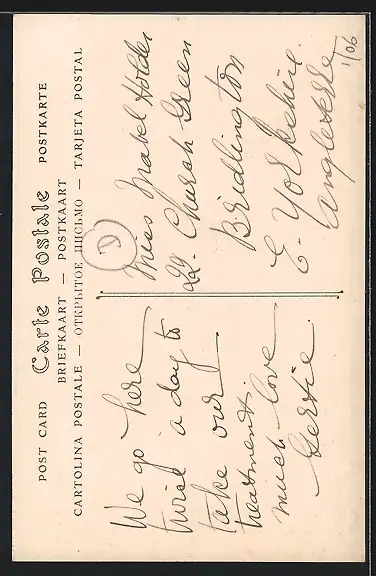 POST CARD Carte Postale POSTKARTE
BRIEFKAART — POSTKAART
CARTOLINA POSTALE — ОТКРЫТОЕ ПИСЬМО — TARJETA POSTAL
We go here
twise a day to
take our
treatment.
much love
Gertie.
Miss Mabel Holder
22. Church Green
Bridlington
E. Yorkshire.
Angleterre
1/06